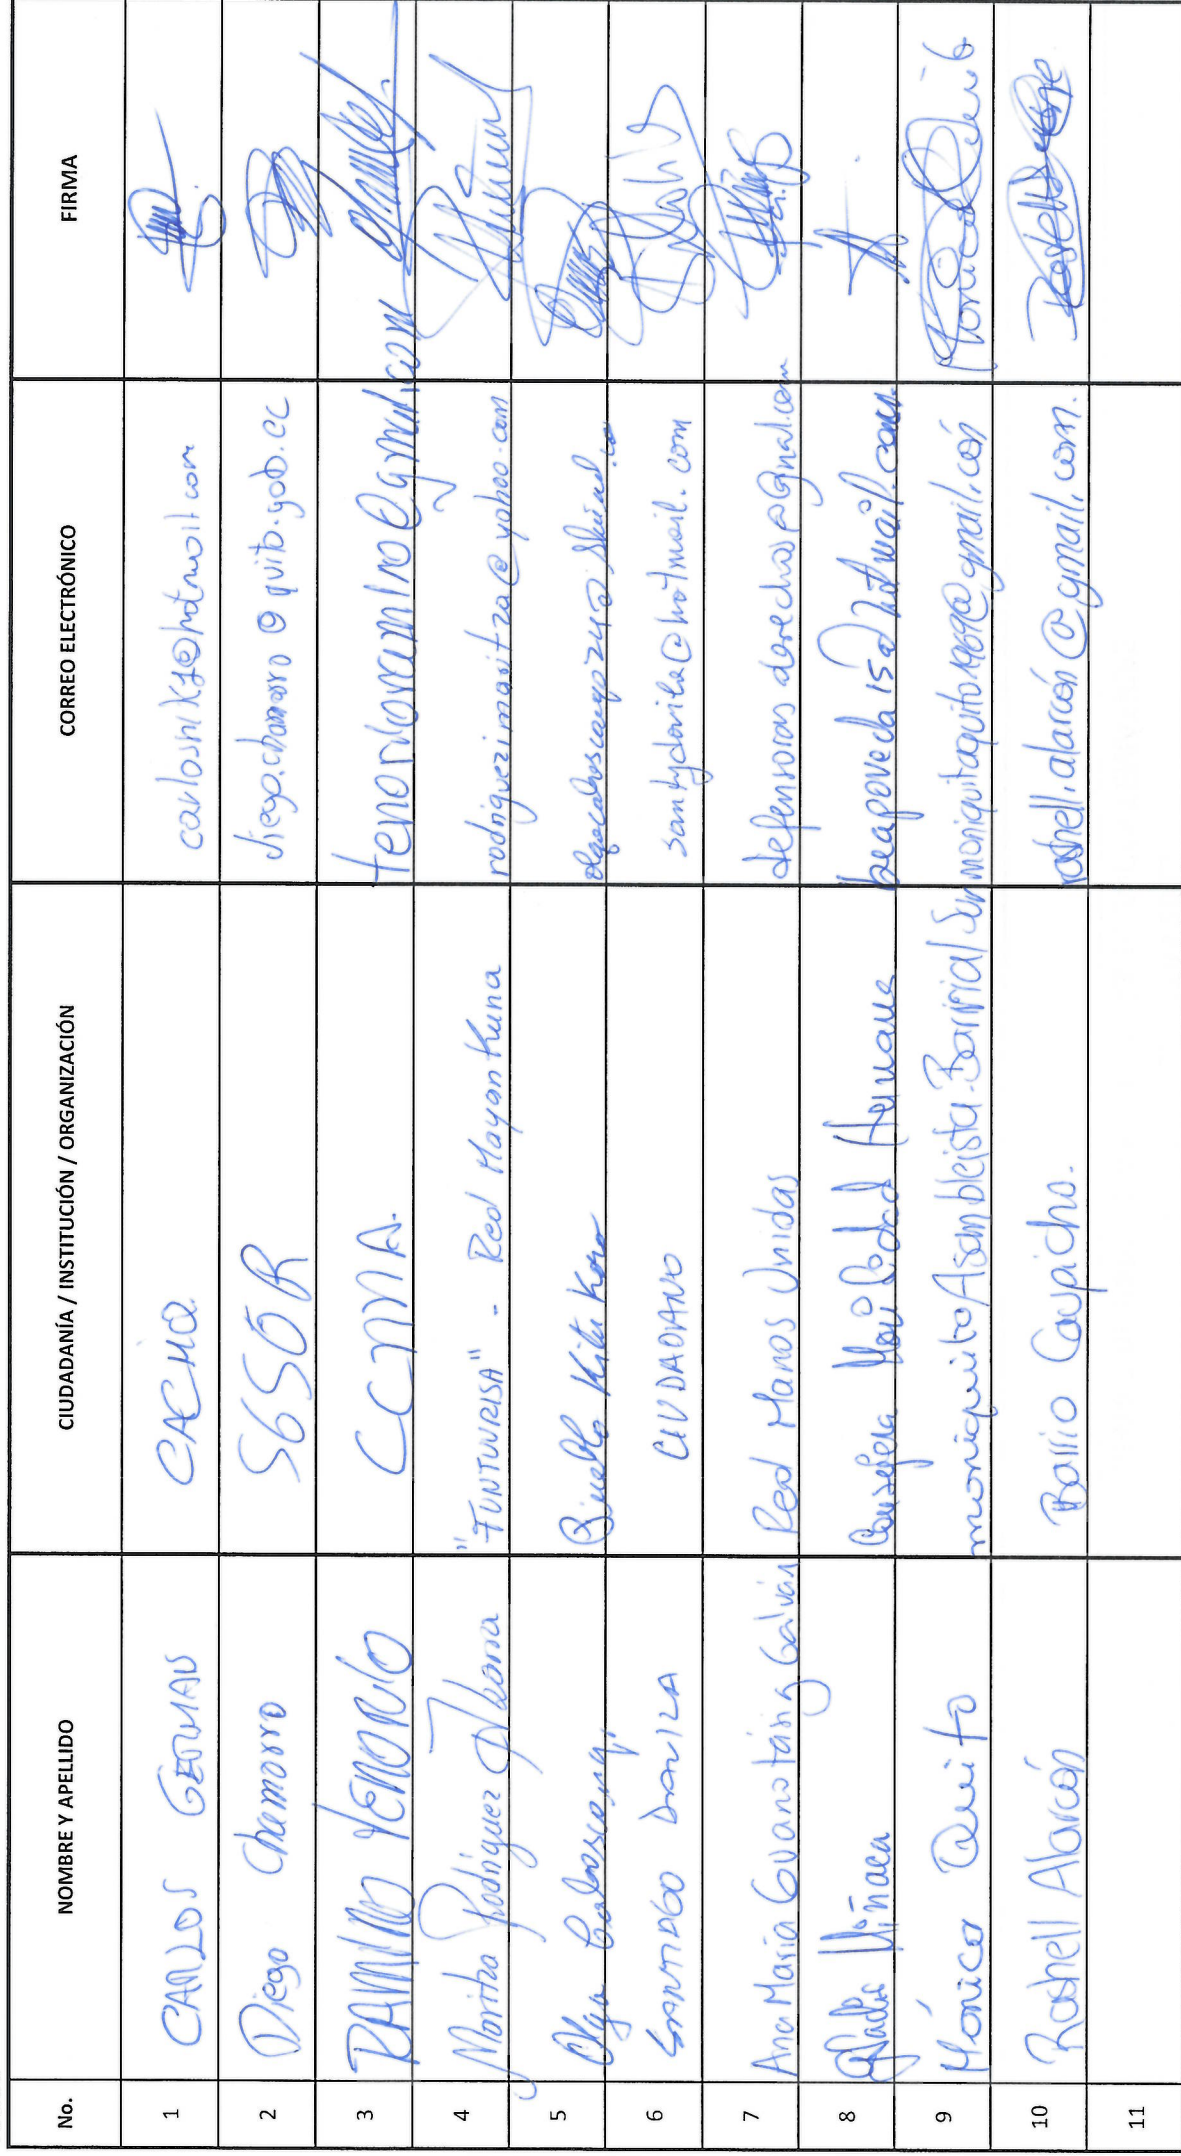 No. NOMBRE Y APELLIDO CIUDADANÍA / INSTITUCIÓN / ORGANIZACIÓN CORREO ELECTRÓNICO FIRMA
1 CARLOS GERMAN CACMQ
2 Diego Chamorro SGSGR diego.chamorro@quito.gob.ec
3 RAMIRO TENORIO tenorioramiro@gmail.com
4 Maritza Rodríguez "FUNTUURISA" - Red Mayan Kuna rodriguezimaritza@yahoo.com
5 Olga Pueblo Kitu Kara
6 SANTIAGO DAVILA CIUDADANO santydavila@hotmail.com
7 Ana María Guanotásig Galván Red Manos Unidas defensoras derechos@gmail.com
8 Miñaca
9 Mónica Quito moniquito Asambleísta Barrial moniquitaquito1969@gmail.com
10 Roshell Alarcón Barrio Caupicho. roshell.alarcón@gmail.com.
11